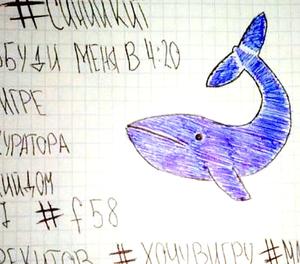 #СИНИЙКИТ
ЗБУДИ МЕНЯ В 4:20
ИГРЕ
КУРАТОРА
# f58
РЕКИТОВ # ХОЧУВИГРУ #М